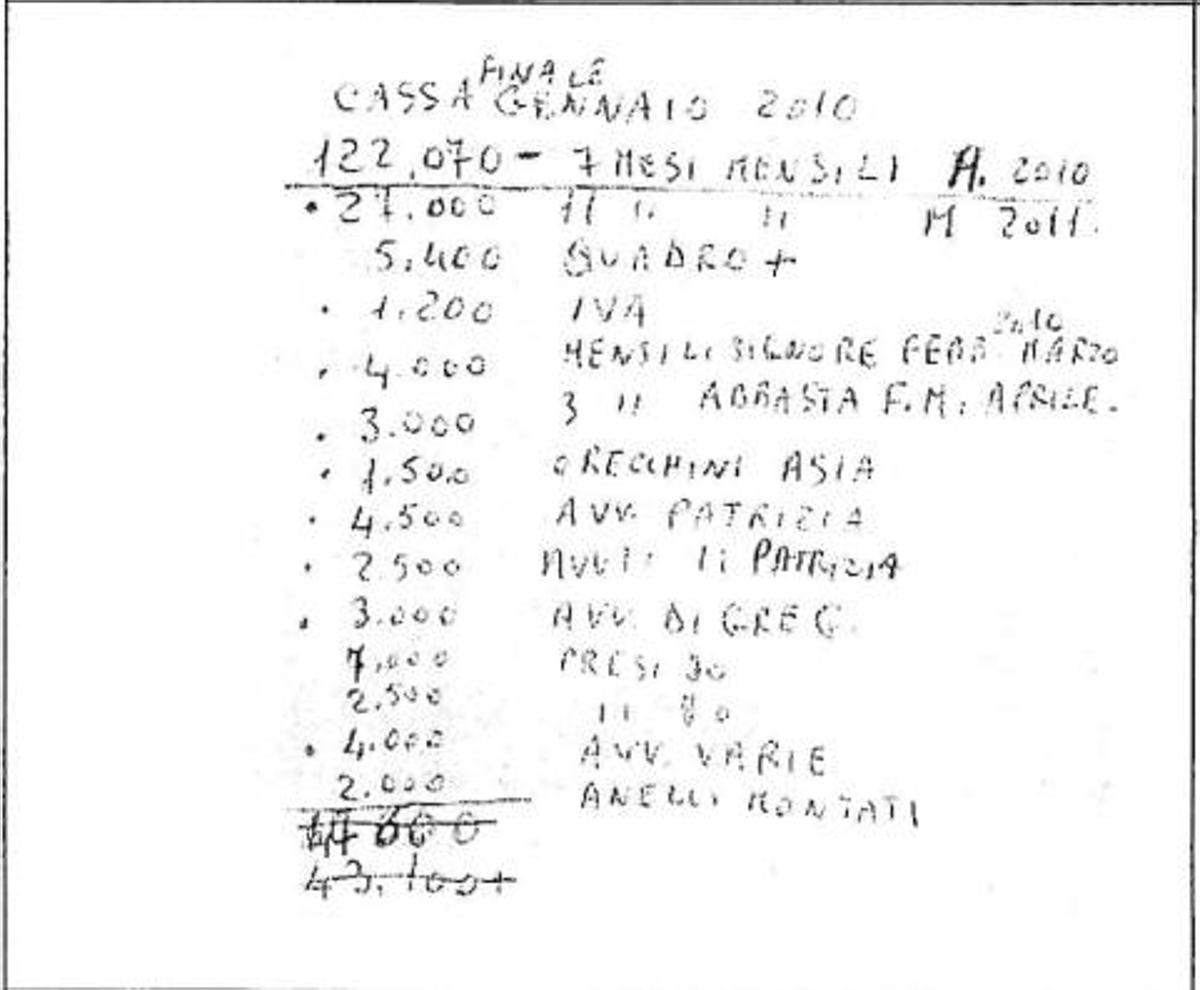 FINALE
CASSA GENNAIO 2010
122.070 - 7 MESI MENSILI A. 2010
• 27.000 11 " " M 2011.
5.400 QUADRO +
• 1.200 IVA
2010
• 4.000 MENSILI SIGNORE FEBB MARZO
• 3.000 3 " ABBASTA F.M. APRILE.
• 1.500 ORECCHINI ASIA
• 4.500 AVV. PATRIZIA
• 2.500 " PATRIZIA
• 3.000 AVV. DI GREG.
7.000 PRESI IO
2.500 " IO
• 4.000 AVV. VARIE
2.000 ANELLI MONTATI
43.100+